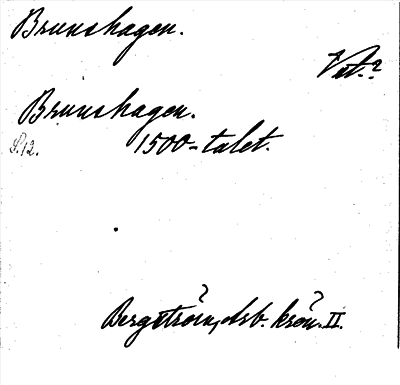 Brunshagen.
Vät.?
Brunshagen.
S.12. 1500-talet.
Bergström, Arb. krön. II.